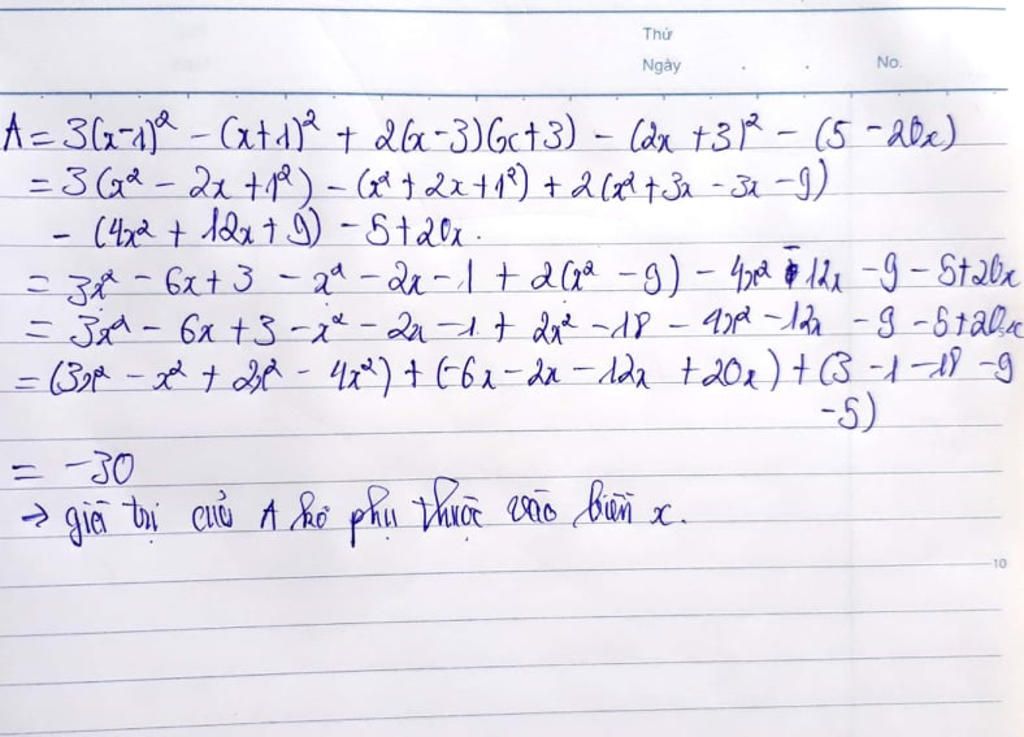 Thứ
Ngày . . No.
A = 3(x-1)² - (x+1)² + 2(x-3)(x+3) - (2x+3)² - (5-20x)
= 3(x² - 2x + 1²) - (x² + 2x + 1²) + 2(x² + 3x - 3x - 9)
- (4x² + 12x + 9) - 5 + 20x.
= 3x² - 6x + 3 - x² - 2x - 1 + 2(x² - 9) - 4x² - 12x - 9 - 5 + 20x
= 3x² - 6x + 3 - x² - 2x - 1 + 2x² - 18 - 4x² - 12x - 9 - 5 + 20x
= (3x² - x² + 2x² - 4x²) + (-6x - 2x - 12x + 20x) + (3 - 1 - 18 - 9
-5)
= -30
→ giá trị của A ko phụ thuộc vào biến x.
10